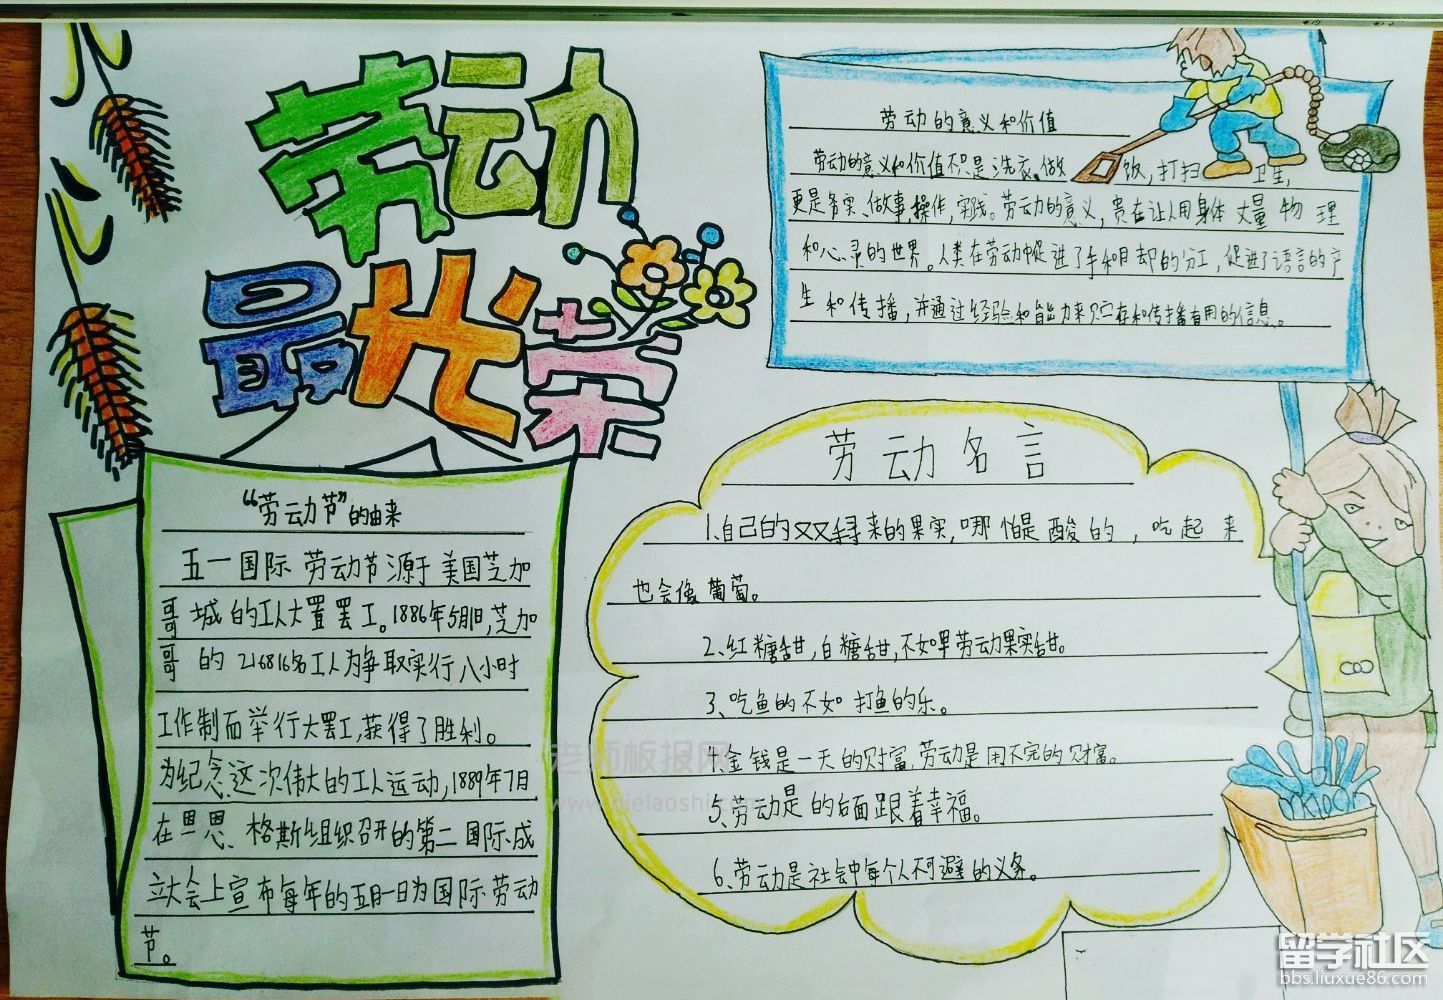 劳动
最光荣
劳动的意义和价值
劳动的意义和价值不只是洗衣、做饭,打扫卫生,
更是务实、做事,操作,实践。劳动的意义,贵在让人用身体丈量物理
和心灵的世界。人类在劳动中促进了手和脚的分工,促进了语言的产
生和传播,并通过经验和能力来贮存和传播有用的信息。
“劳动节”的由来
五一国际劳动节源于美国芝加
哥城的工人大罢工。1886年5月1日,芝加
哥的216816名工人为争取实行八小时
工作制而举行大罢工,获得了胜利。
为纪念这次伟大的工人运动,1889年7月
在恩恩、格斯组织召开的第二国际成
立大会上宣布每年的五月一日为国际劳动
节。
劳动名言
1、自己的双手寻来的果实,哪怕是酸的,吃起来
也会像葡萄。
2、红糖甜,白糖甜,不如劳动果实甜。
3、吃鱼的不如打鱼的乐。
4、金钱是一天的财富,劳动是用不完的财富。
5、劳动是的后面跟着幸福。
6、劳动是社会中每个人不可避的义务。
老师板报网
www.jielaoshi.com
留学社区
bbs.liuxue86.com